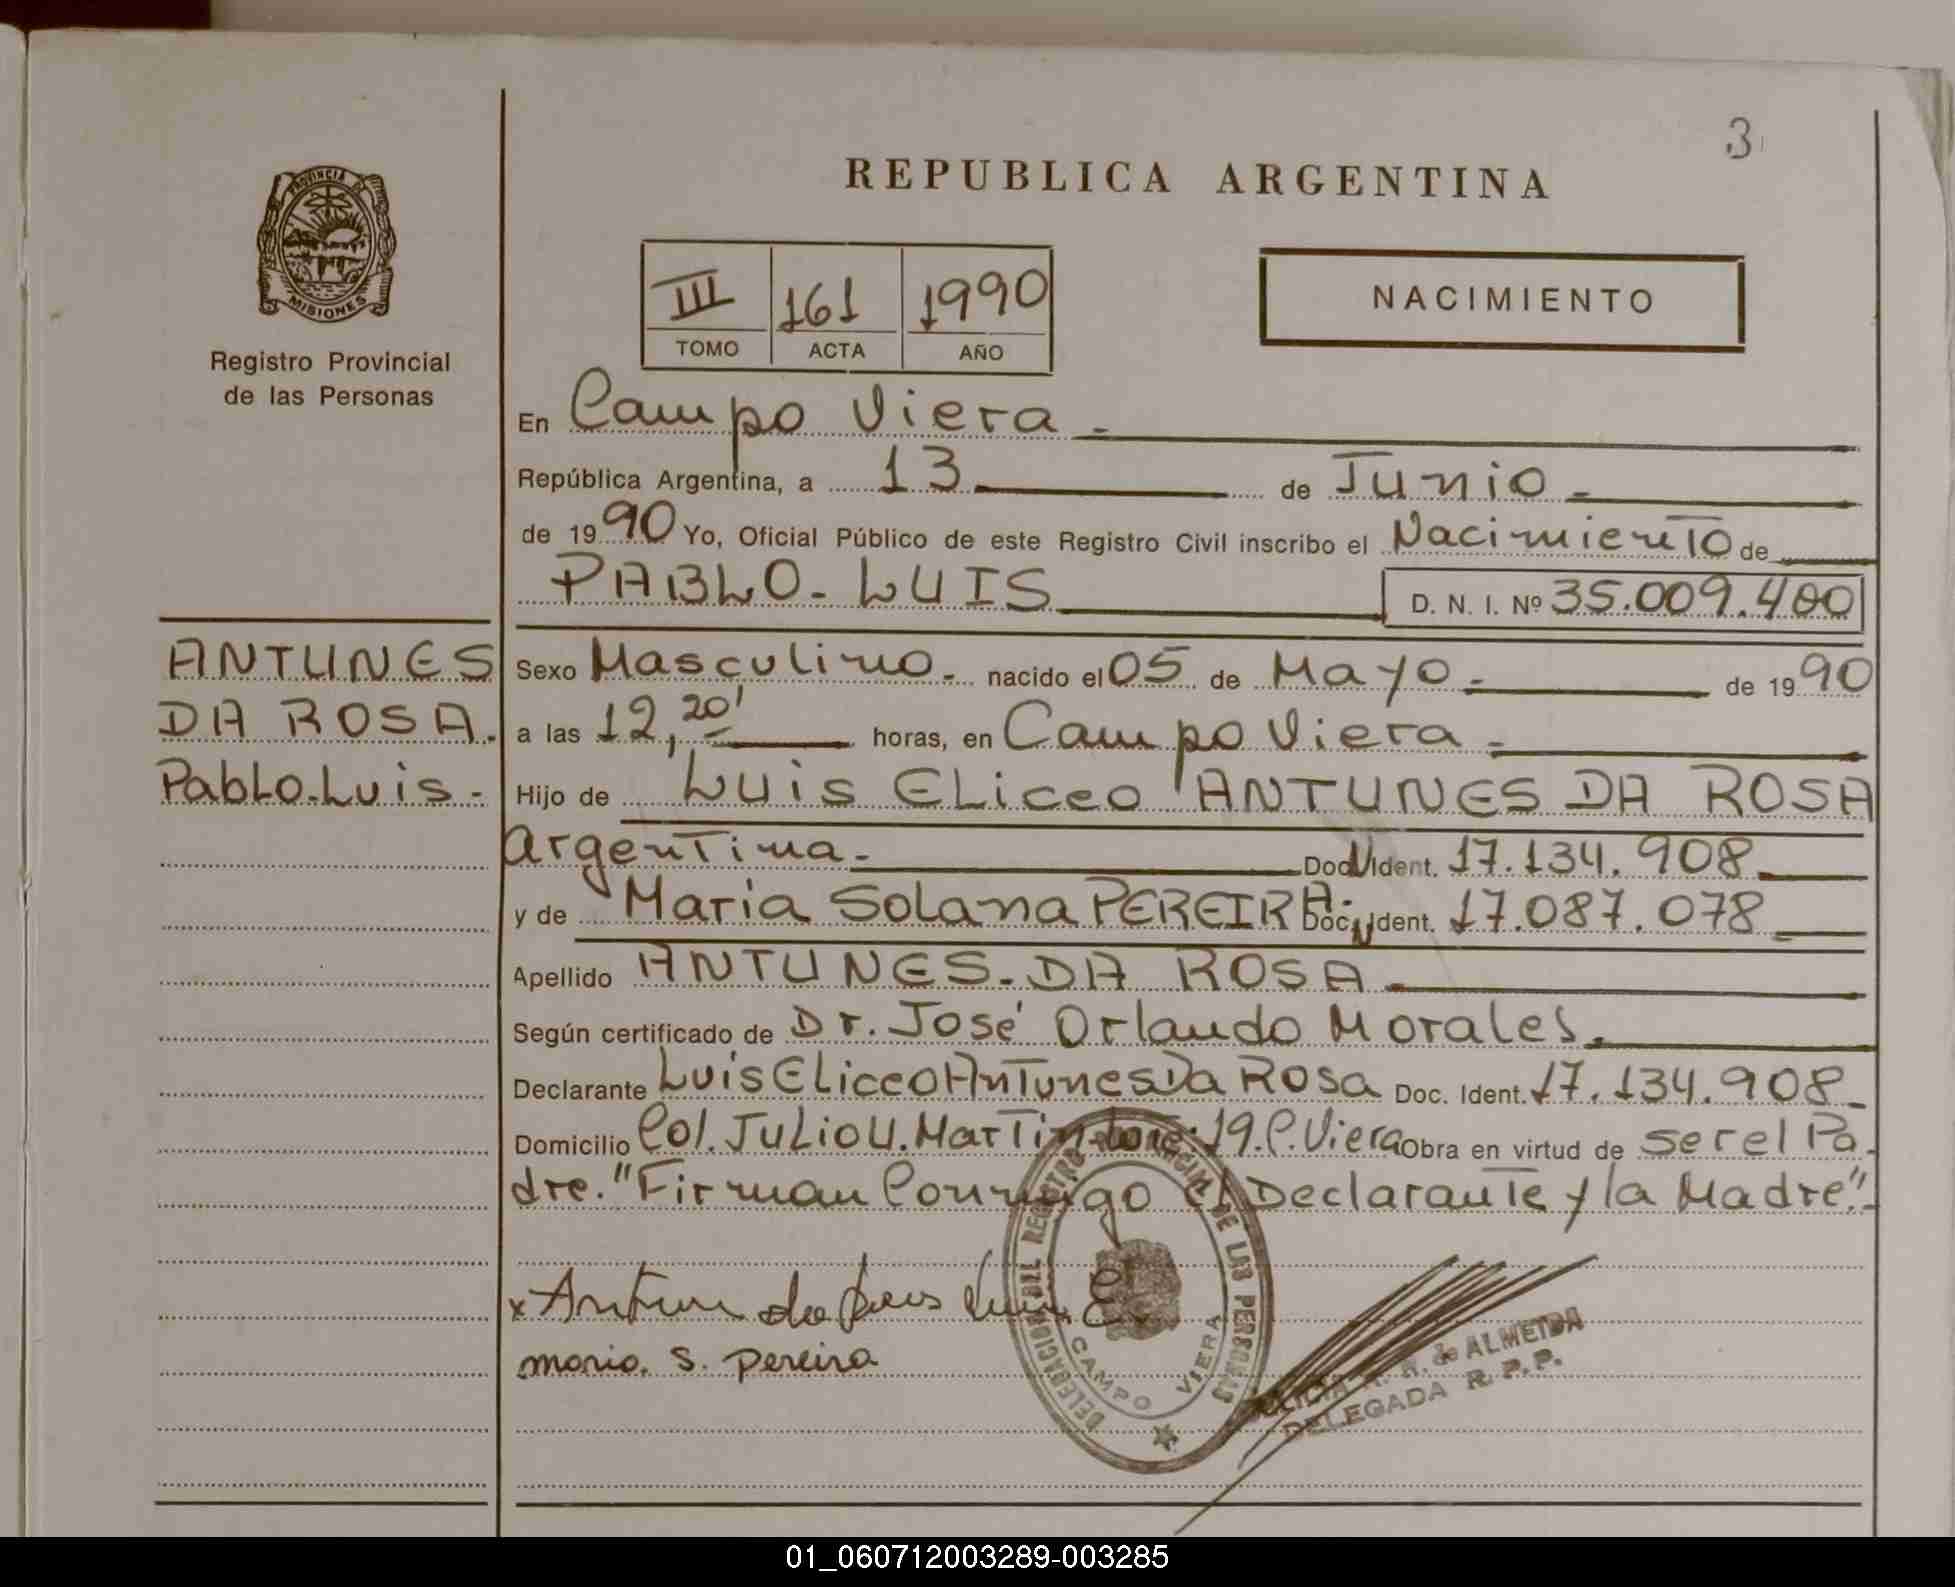 3
REPUBLICA ARGENTINA
PROVINCIA DE
MISIONES
Registro Provincial
de las Personas
III 161 1990
TOMO ACTA AÑO
NACIMIENTO
En Campo Viera.-
República Argentina, a 13 de Junio.-
de 1990 Yo, Oficial Público de este Registro Civil inscribo el Nacimiento de
PABLO-LUIS D. N. I. Nº 35.009.400
ANTUNES
DA ROSA.
Pablo-Luis.-
Sexo Masculino.- nacido el 05 de Mayo.- de 1990
a las 12,20' horas, en Campo Viera.-
Hijo de Luis Eliceo ANTUNES DA ROSA
Argentina.- Doc. Ident. 17.134.908
y de Maria Solana PEREIRA. Doc. Ident. 17.087.078
Apellido ANTUNES-DA ROSA.-
Según certificado de Dr. José Orlando Morales.
Declarante Luis Eliceo Antunes Da Rosa Doc. Ident. 17.134.908_
Domicilio Col. Julio U. Martin-Lote:19.C.Viera Obra en virtud de ser el Pa-
dre. "Firman Conmigo el Declarante y la Madre".-
x Antun da Luis E.
maria. s. pereira
DELEGACION DEL REGISTRO PROVINCIAL DE LAS PERSONAS
CAMPO VIERA
R. de ALMEIDA
DELEGADA R. P. P.
01_060712003289-003285